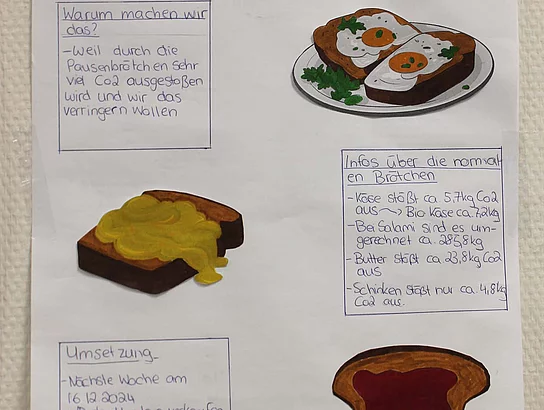 Warum machen wir
das?
- Weil durch die
Pausenbrötchen sehr
viel Co2 ausgestoßen
wird und wir das
verringern wollen
Infos über die normal
en Brötchen
- Käse stößt ca 5,7kg Co2
aus → Bio Käse ca. 7,2kg
- Bei Salami sind es um-
gerechnet ca. 285,8kg
- Butter stößt ca. 23,8kg Co2
aus
- Schinken stößt nur ca. 4,8kg
Co2 aus.
Umsetzung
- Nächste Woche am
16.12.2024